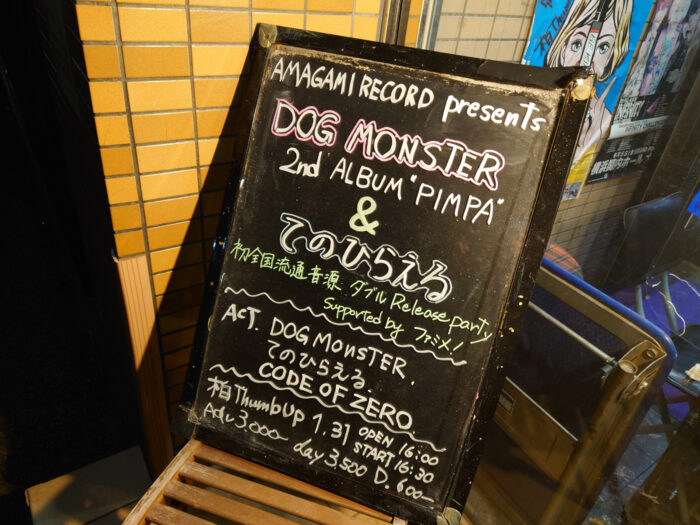 AMAGAMI RECORD presents
DOG MONSTER
2nd ALBUM "PIMPA"
&
てのひらえる
初全国流通音源 ダブル Release party
Supported by ファミメ!
Act. DOG MONSTER.
てのひらえる.
CODE OF ZERO
柏 ThumbUp 1.31 OPEN 16:00
START 16:30
Adv 3,000- day 3,500 D. 600-
柏Thum